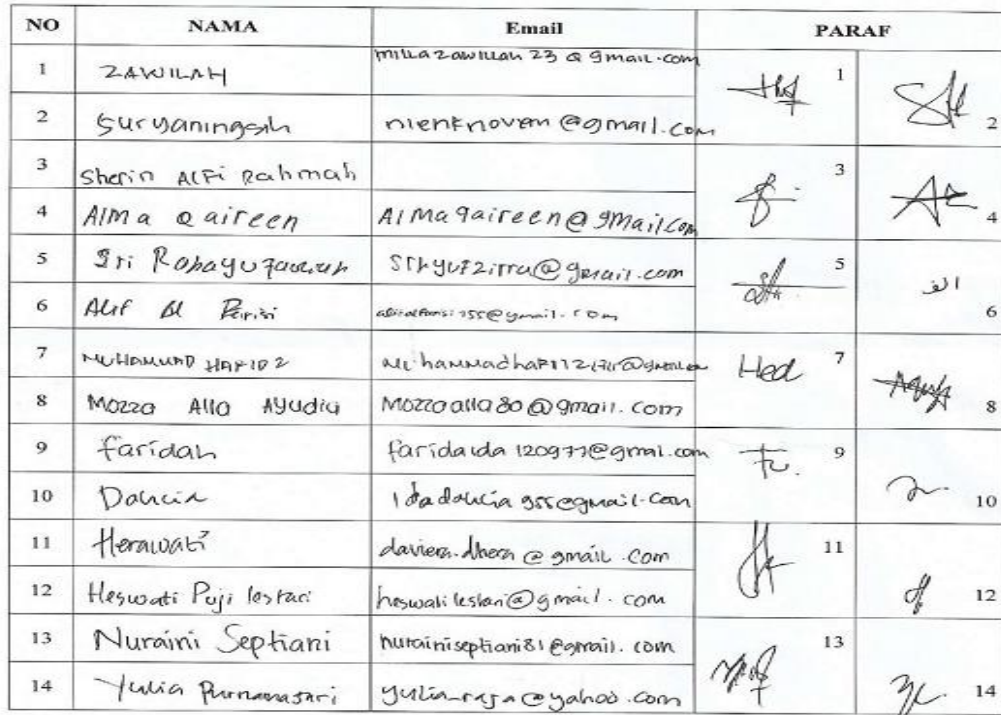 NO NAMA Email PARAF
1 ZAWILAH millazawillah23@gmail.com 1
2 Suryaningsih nienknoven@gmail.com 2
3 Sherin Alfi Rahmah 3
4 Alma Qaireen Almaqaireen@gmail.com 4
5 Sri 5
6 Alif Al Parisi الف 6
7 MUHAMMAD HAFIDZ 7
8 Mozza Alla Ayudia Mozzaalla80@gmail.com 8
9 faridah faridaida120977@gmai.com 9
10 Dahcia 10
11 Herawati daviera.dhera@gmail.com 11
12 Heswati Puji lestari heswatilestari@gmail.com 12
13 Nuraini Septiani nurainiseptiani81@gmail.com 13
14 Yulia Purnamasari yulia_rasa@yahoo.com 14